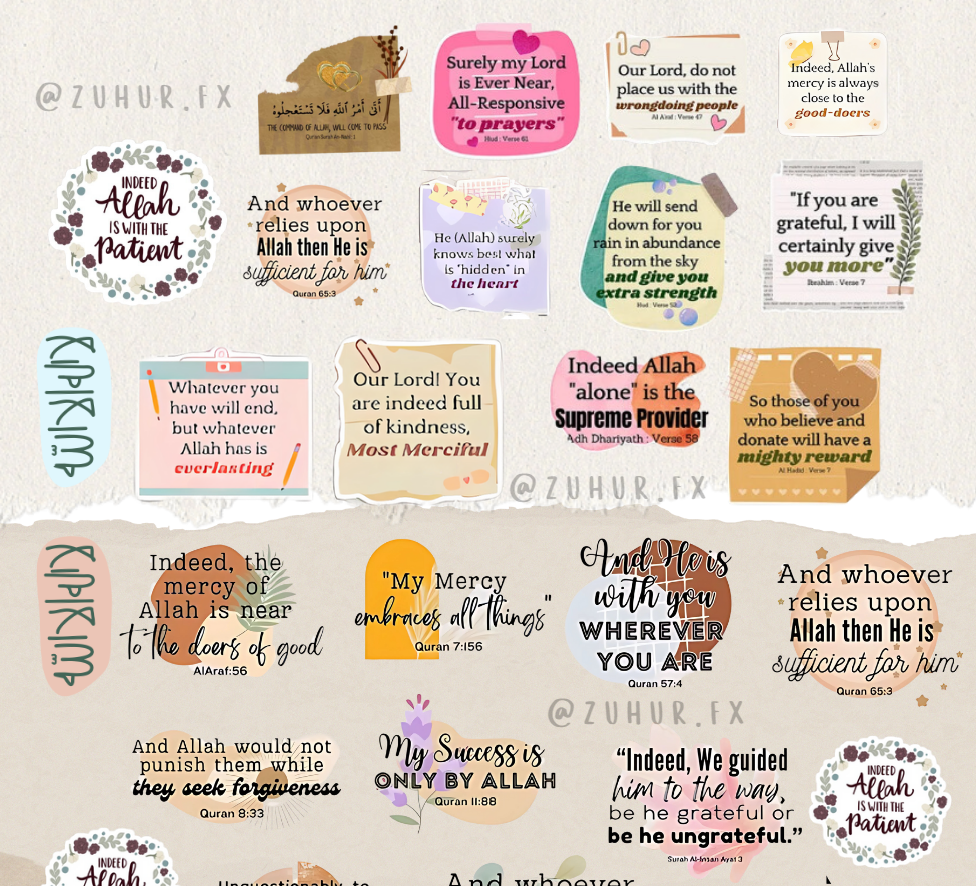 @ZUHUR.FX
أَتَىٰ أَمْرُ اللّٰهِ فَلَا تَسْتَعْجِلُوْهُ
THE COMMAND OF ALLAH, WILL COME TO PASS
Surely my Lord
is Ever Near,
All-Responsive
"to prayers"
Hud : Verse 61
Our Lord, do not
place us with the
wrongdoing people
Al A'raf : Verse 47
Indeed, Allah's
mercy is always
close to the
good-doers
INDEED
Allah
IS WITH THE
Patient
And whoever
relies upon
Allah then He is
sufficient for him
Quran 65:3
He (Allah) surely
knows best what
is "hidden" in
the heart
He will send
down for you
rain in abundance
from the sky
and give you
extra strength
Hud : Verse 52
"If you are
grateful, I will
certainly give
you more"
Ibrahim : Verse 7
Whatever you
have will end,
but whatever
Allah has is
everlasting
Our Lord! You
are indeed full
of kindness,
Most Merciful
Indeed Allah
"alone" is the
Supreme Provider
Adh Dhariyath : Verse 58
So those of you
who believe and
donate will have a
mighty reward
Al Hadid : Verse 7
@ZUHUR.FX
Indeed, the
mercy of
Allah is near
to the doers of good
AlAraf:56
"My Mercy
embraces all things"
Quran 7:156
And He is
with you
WHEREVER
YOU ARE
Quran 57:4
And whoever
relies upon
Allah then He is
sufficient for him
Quran 65:3
@ZUHUR.FX
And Allah would not
punish them while
they seek forgiveness
Quran 8:33
My Success is
ONLY BY ALLAH
Quran 11:88
“Indeed, We guided
him to the way,
be he grateful or
be he ungrateful.”
Surah Al-Insan Ayat 3
INDEED
Allah
IS WITH THE
Patient
INDEED
Allah
Unquestionably, to
And whoever